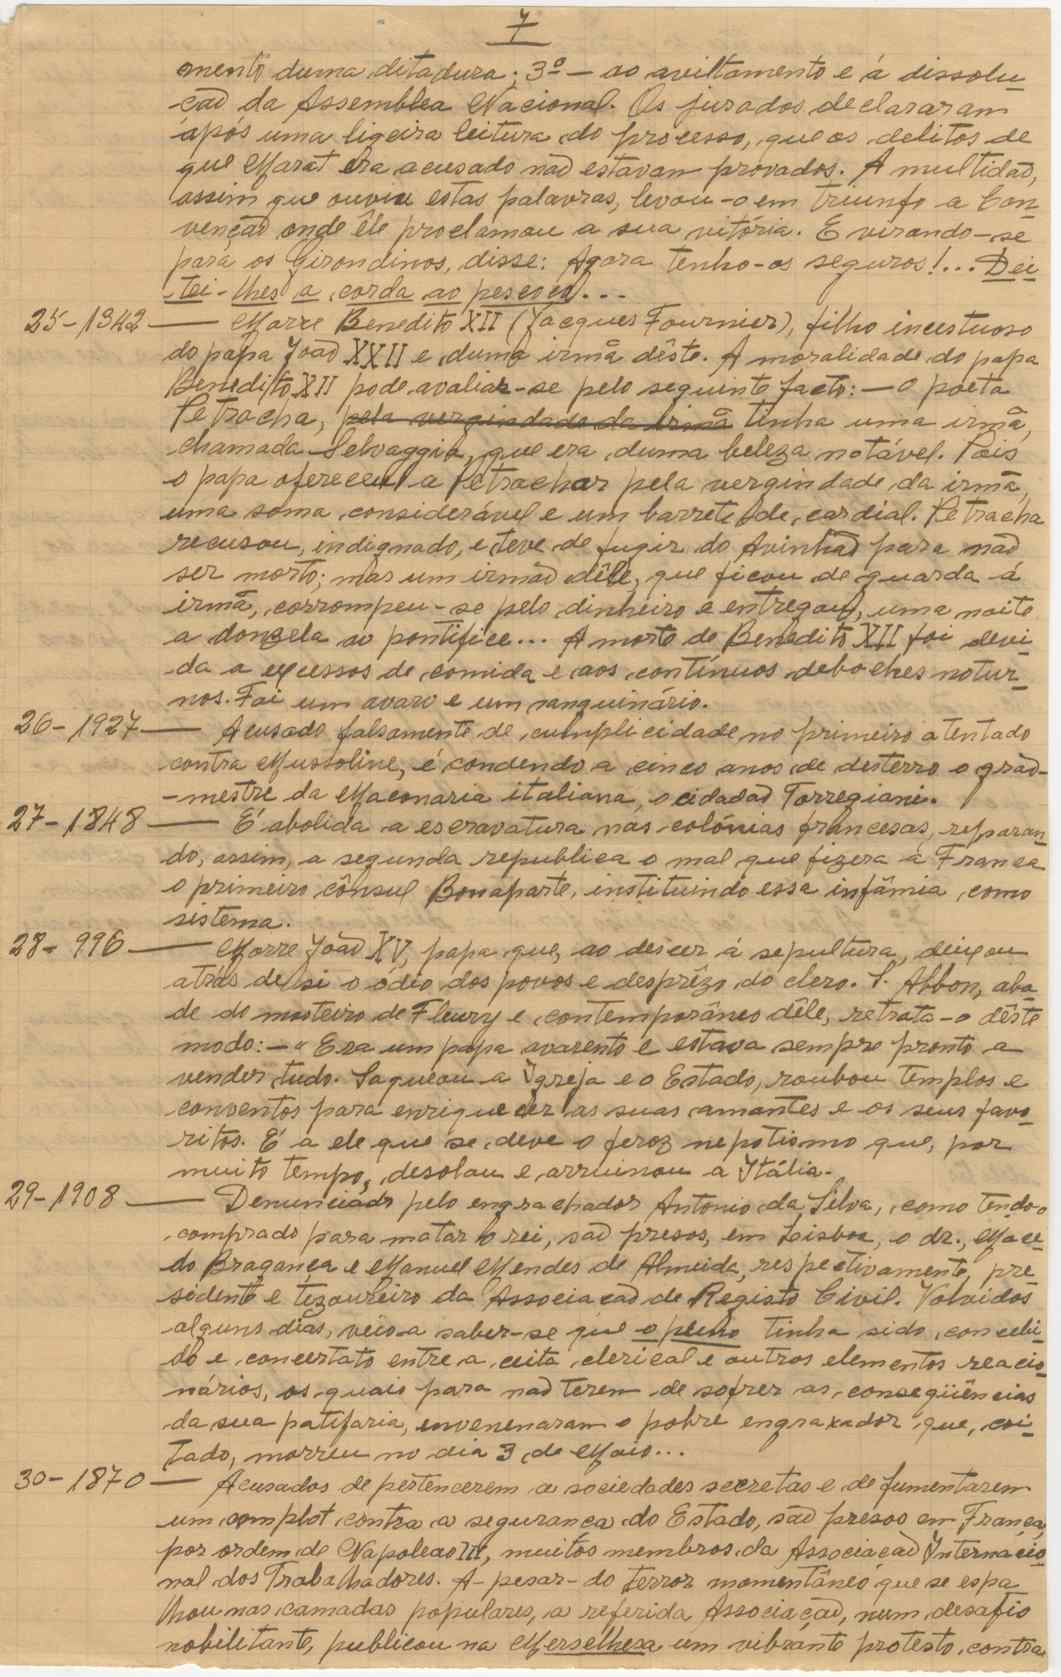 7
mento duma ditadura; 3º — ao aviltamento e á dissolu-
ção da Assemblea Nacional. Os jurados declararam
após uma ligeira leitura do processo, que os delitos de
que Marat era acusado não estavam provados. A multidão,
assim que ouviu estas palavras, levou-o em triunfo a Con-
venção onde êle proclamau a sua vitória. E virando-se
para os Girondinos, disse: Agora tenho-os seguros!... Dei-
tei-lhes a corda ao pescoço...
25-1342 — Morre Benedito XII (Jacques Fournier), filho incestuoso
do papa João XXII e duma irmã dêste. A moralidade do papa
Benedito XII pode avaliar-se pelo seguinte facto: — O poeta
Petracha, pela vergindade da irmã tinha uma irmã,
chamada Selvaggia, que era duma beleza notável. Pois
o papa ofereceu a Petrachar pela vergindade da irmã,
uma soma considerável e um barrete de cardial. Petracha
recusou, indignado, e teve de fugir do Avinhão para não
ser morto; mas um irmão dêle, que ficou de guarda á
irmã, corrompeu-se pelo dinheiro e entregou, uma noite
a donzela ao pontifice... A morte de Benedito XII foi devi-
da a excessos de comida e aos contínuos deboches notur-
nos. Foi um avaro e um sanguinário.
26-1927 — Acusado falsamente de cumplicidade no primeiro atentado
contra Mussoline, é condendo a cinco anos de desterro o grão-
-mestre da Maconaria italiana, o cidadão Torregiani.
27-1848 — É abolida a escravatura nas colónias francesas, reparan-
do, assim, a segunda republica o mal que fizera a França
o primeiro cônsul Bonaparte, instituindo essa infâmia como
sistema.
28-996 — Morre João XV, papa que, ao descer á sepultura, deixou
atrás de si o ódio dos povos e desprêzo do clero. S. Abbon, aba-
de do mosteiro de Fleury e contemporâneo dêle, retrata-o dêste
modo: — « Era um papa avarento e estava sempre pronto a
vender tudo. Saqueou a Igreja e o Estado, roubou templos e
conventos para enriquecer as suas amantes e os seus favo-
ritos. É a ele que se deve o feroz nepotismo que, por
muito tempo, desolou e arruinou a Itália.
29-1908 — Denunciado pelo engrachador Antonio da Silva, como tendo-o
comprado para matar o rei, são presos, em Lisboa, o dr. Mace-
do Bragança e Manuel Mendes de Almeida, respectivamente, pre-
sidente e tezoureiro da Associação de Registo Civil. Volvidos
alguns dias, veio a saber-se que o plano tinha sido concebi-
do e concertato entre a ceita clerical e outros elementos reacio-
nários, os quais para não terem de sofrer as conseqüências
da sua patifaria, envenenaram o pobre engraxador que, coi-
tado, morreu no dia 3 de Maio...
30-1870 — Acusados de pertencerem a sociedades secretas e de fumentarem
um complot contra a segurança do Estado, são presos em França,
por ordem de Napoleão III, muitos membros da Associação Internacio-
nal dos Trabalhadores. A-pesar-do terror momentâneo que se espa-
lhou nas camadas populares, a referida Associação, num desafio
nobilitante, publicou na Merselhesa um vibrante protesto contra